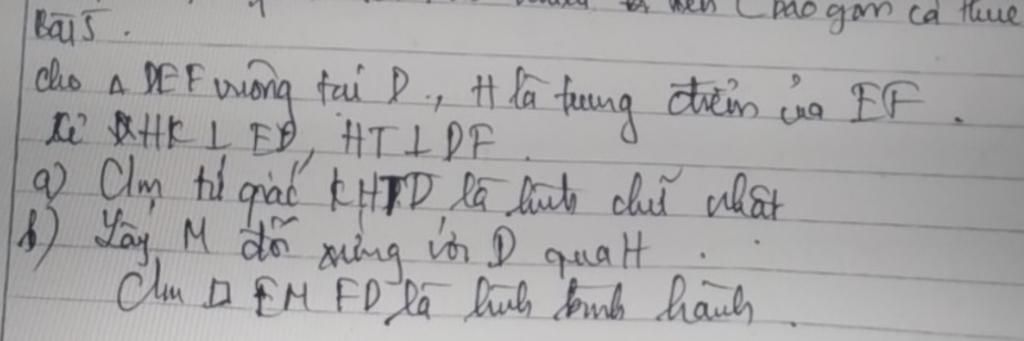 (bao gồm cả thuê
Bài 5.
Cho Δ DEF vuông tại D., H là trung điểm của EF.
Kẻ HK ⊥ ED, HT ⊥ DF.
a) Cm tứ giác KHTD là hình chữ nhật
b) Lấy M đối xứng với D qua H.
Cm □ EMFD là hình bình hành.